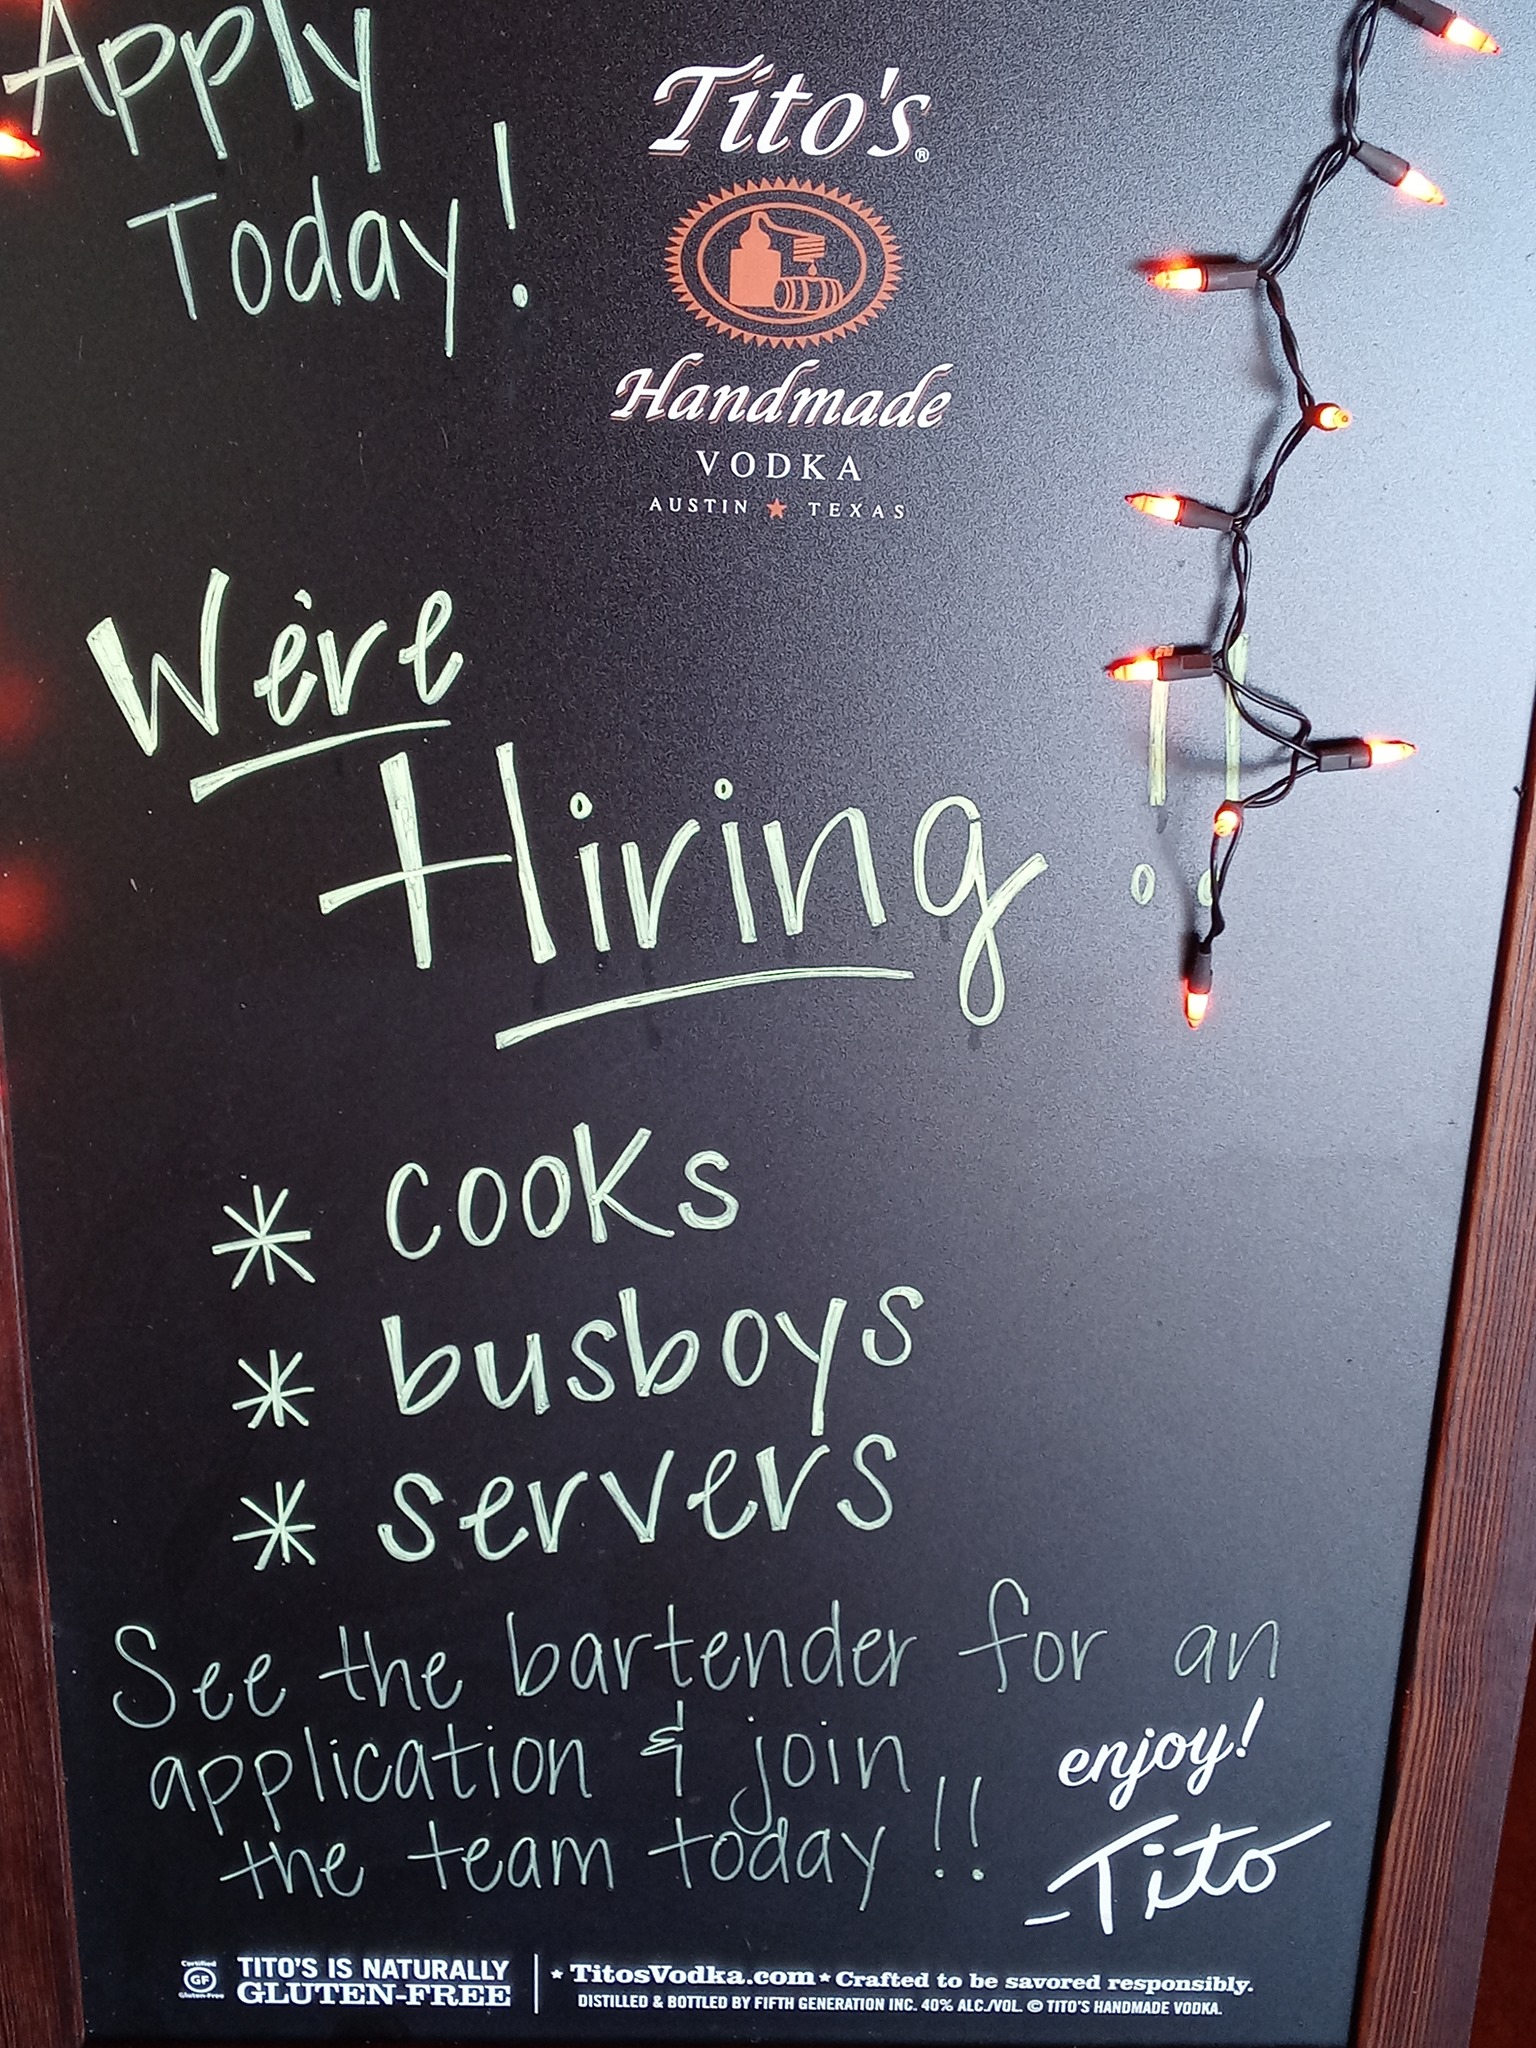 Apply
Today!
Tito's®
Handmade
VODKA
AUSTIN ★ TEXAS
We're
Hiring!!
* cooks
* busboys
* servers
See the bartender for an
application & join
the team today!!
enjoy!
-Tito
Certified
GF
Gluten-Free
TITO'S IS NATURALLY
GLUTEN-FREE
★ TitosVodka.com ★ Crafted to be savored responsibly.
DISTILLED & BOTTLED BY FIFTH GENERATION INC. 40% ALC./VOL. © TITO'S HANDMADE VODKA.